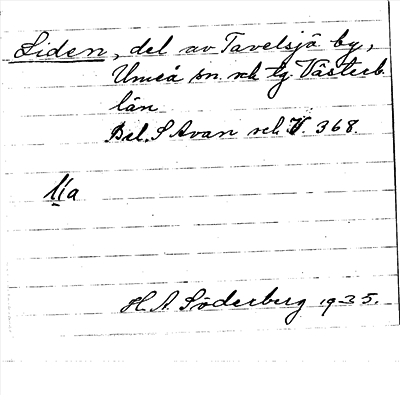 Liden, del av Tavelsjö by,
Umeå sn. och tg. Västerb.
län.
Bd. S Avan och V. 368.
1/a
H. A. Söderberg 1935.